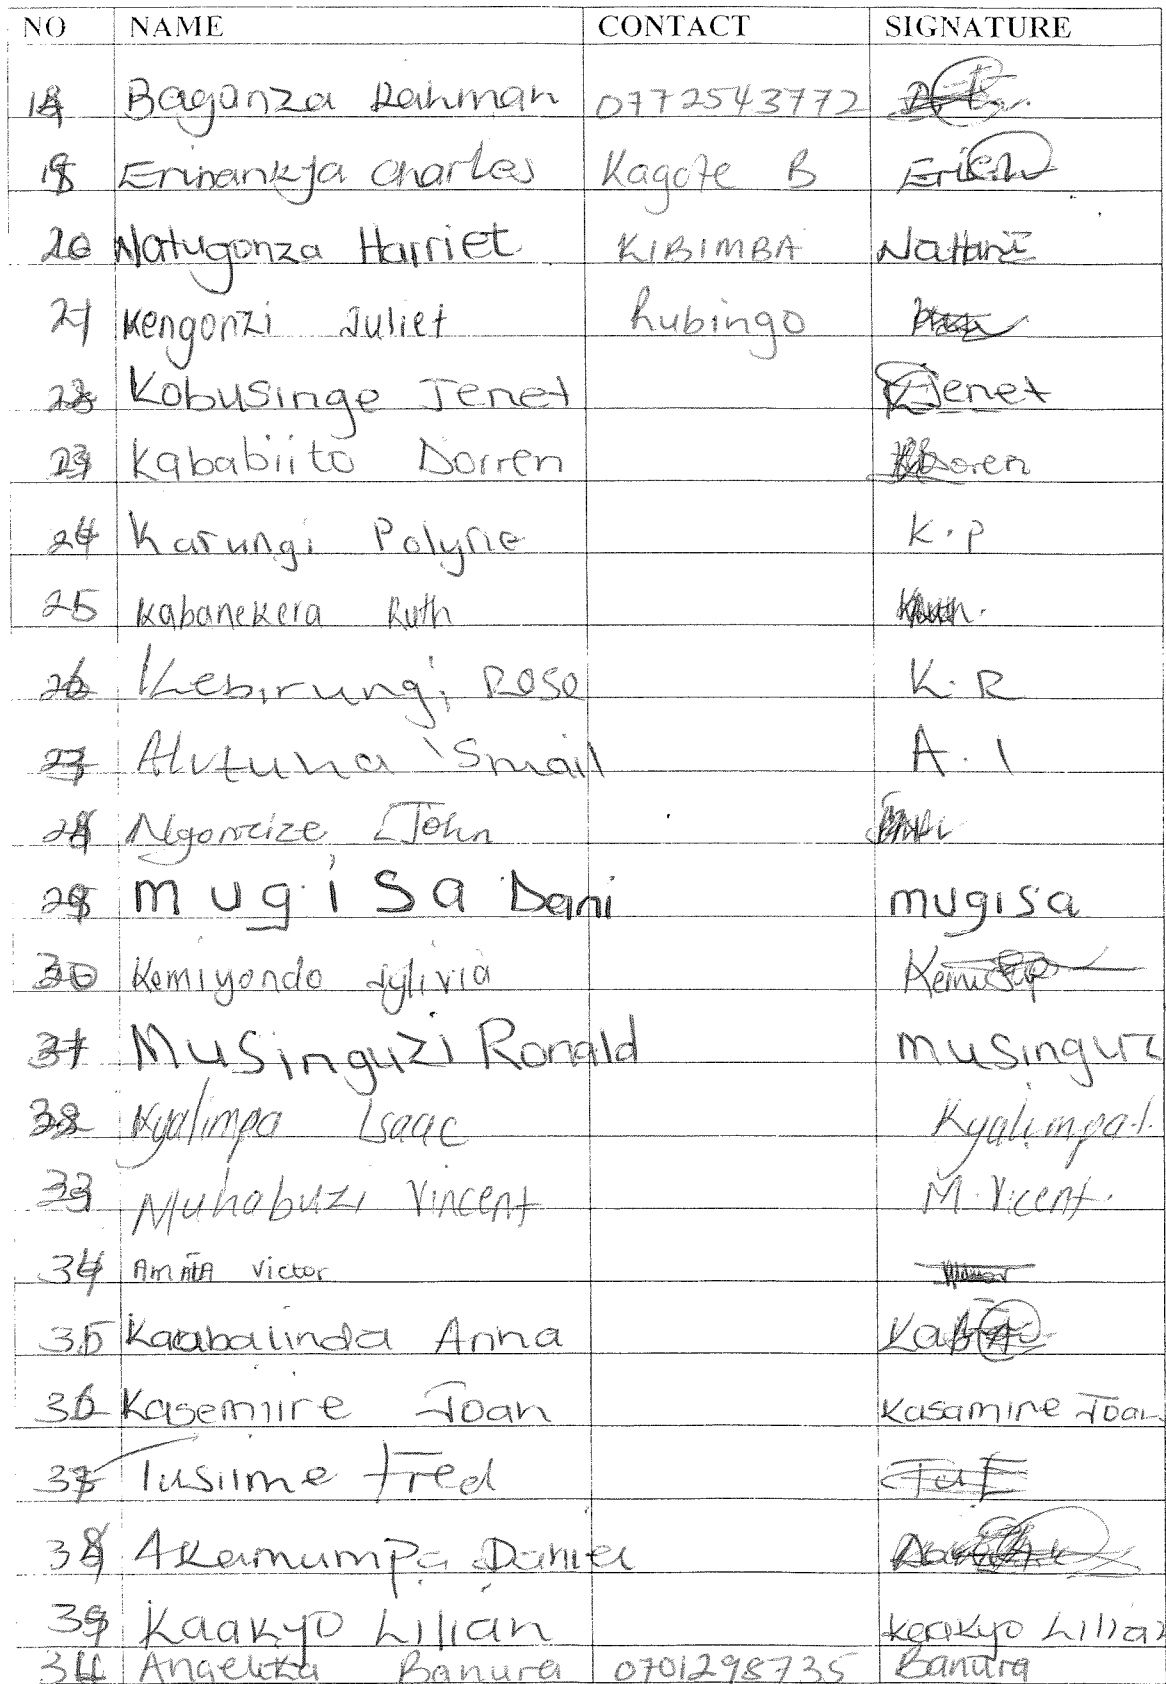 NO NAME CONTACT SIGNATURE
18 Bagonza Rahman 0772543772
19 Erinankya Charles Kagote B Erich
20 Natugonza Harriet KIBIMBA NaHarie
21 Kengonzi Juliet Rubingo
22 Kobusinge Jenet Jenet
23 Kababiito Dorren Doren
24 Karungi Polyne K.P
25 Kabanekera Ruth
26 Kebirungi Roso K.R
27 Alutuna Ismail A.I
28 Ngonzize John
29 mugisa Dani mugisa
30 Kemiyondo Sylivia
31 Musinguzi Ronald musinguz
32 Kyalimpa Isaac Kyalimpa.I.
33 Muhabuzi Vincent M. Vicent.
34 Victor
35 Kaabalinda Anna
36 Kasemiire Joan Kasamire Joan
37 Tusiime Fred
38 Akamumpa Daniel
39 Kaakyo Lilian Kaakyo Lilian
Angelika Banura 0701298735 Banura